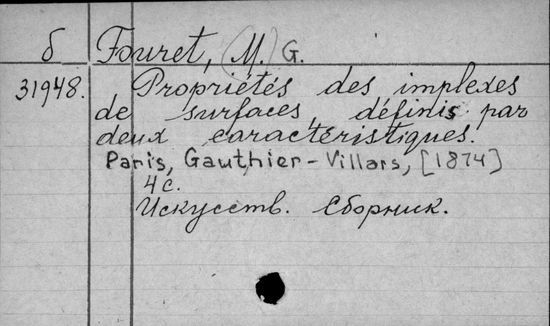 б Fouret, (M.) G.
31948. Propriétés des implexes
de surfaces, définis par
deux caractéristiques.
Paris, Gauthier-Villars, [1874]
4 с.
Искусств. Сборник.